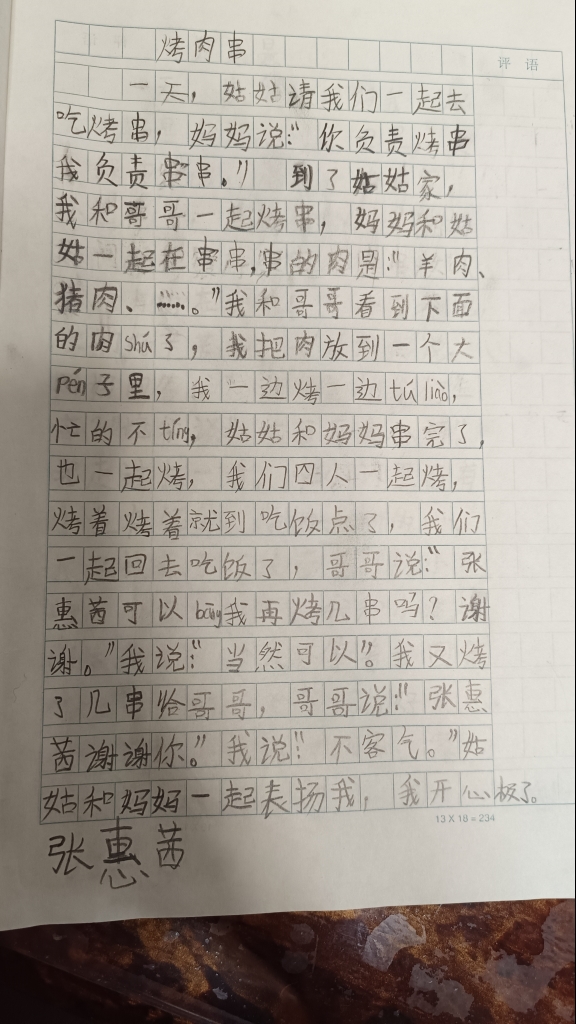 烤肉串
评语
一天，姑姑请我们一起去
吃烤串，妈妈说：“你负责烤串
我负责串串。”到了姑姑家，
我和哥哥一起烤串，妈妈和姑
姑一起在串串，串的肉是：“羊肉、
猪肉、……。”我和哥哥看到下面
的肉shú了，我把肉放到一个大
pén子里，我一边烤一边tú liào，
忙的不tíng，姑姑和妈妈串完了，
也一起烤，我们四人一起烤，
烤着烤着就到吃饭点了，我们
一起回去吃饭了，哥哥说：“张
惠茜可以bāng我再烤几串吗？谢
谢。”我说：“当然可以”。我又烤
了几串给哥哥，哥哥说：“张惠
茜谢谢你。”我说：“不客气。”姑
姑和妈妈一起表扬我，我开心极了。
13 X 18 = 234
张惠茜